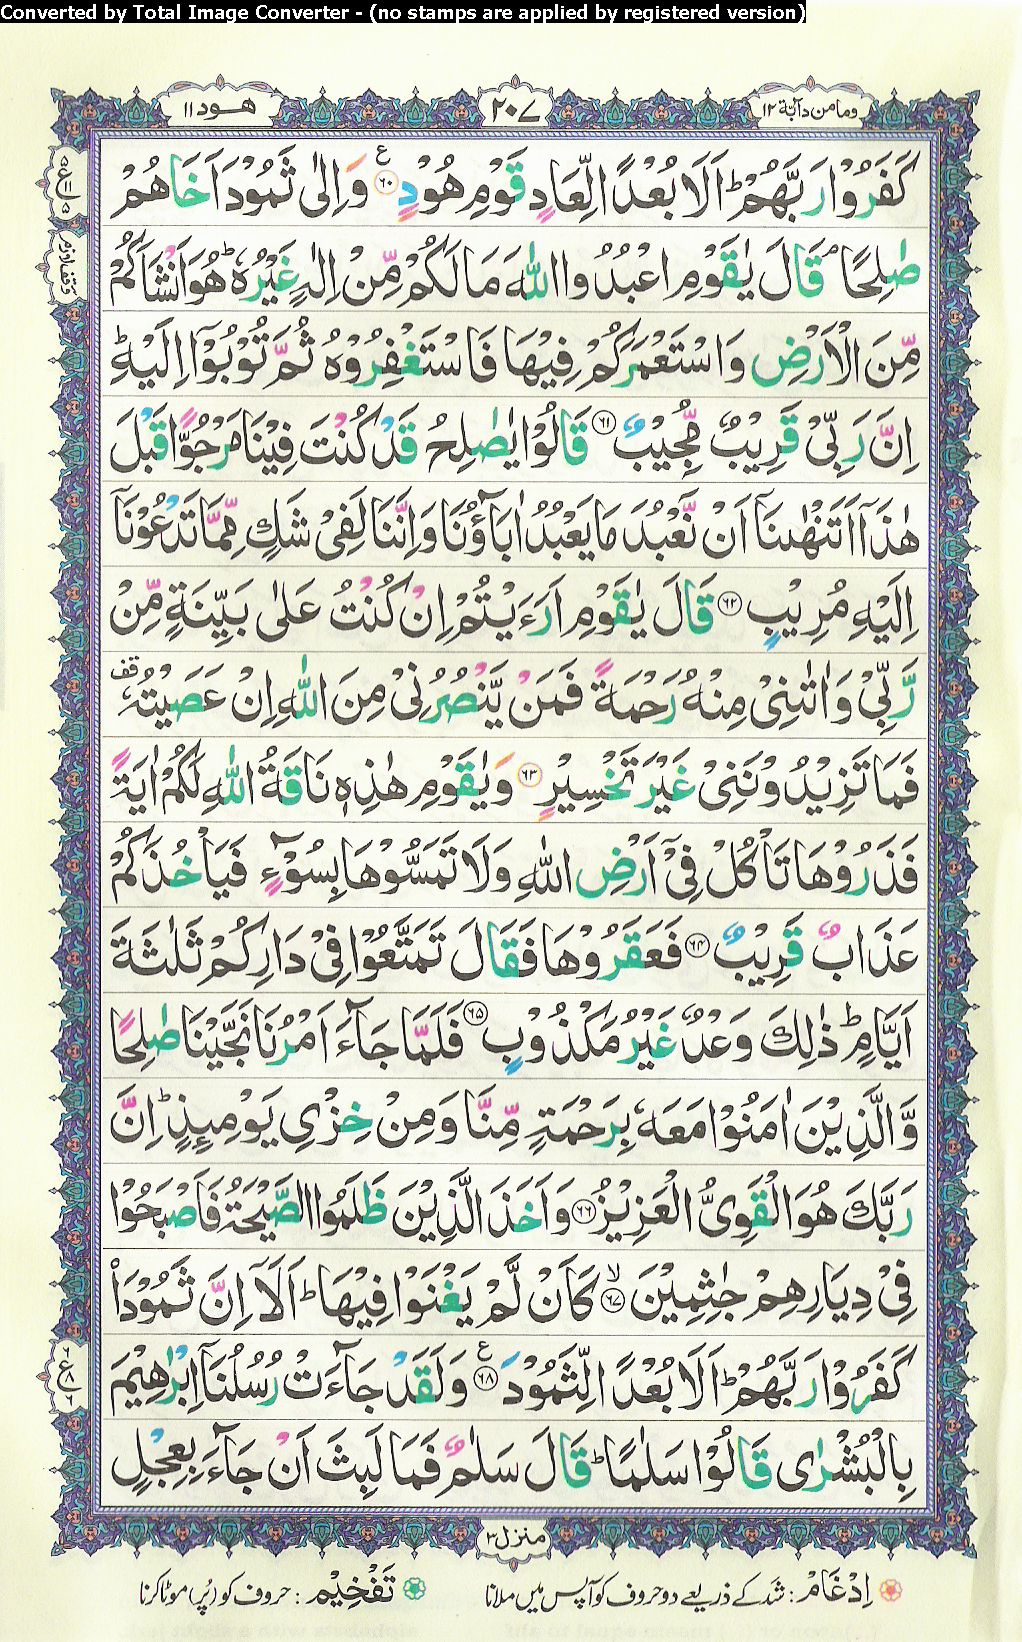 Converted by Total Image Converter - (no stamps are applied by registered version)
وما من دآبّة ١٢
٢٠٧
هود ١١
كَفَرُوْا رَبَّهُمْ ؕ اَلَا بُعْدًا لِّعَادٍ قَوْمِ هُوْدٍ ۶۰ ع وَ اِلٰى ثَمُوْدَ اَخَاهُمْ
صٰلِحًا ۘ قَالَ يٰقَوْمِ اعْبُدُوا اللّٰهَ مَا لَكُمْ مِّنْ اِلٰهٍ غَيْرُهٗ ؕ هُوَ اَنْشَاَكُمْ
مِّنَ الْاَرْضِ وَ اسْتَعْمَرَكُمْ فِيْهَا فَاسْتَغْفِرُوْهُ ثُمَّ تُوْبُوْۤا اِلَيْهِ ؕ
اِنَّ رَبِّىْ قَرِيْبٌ مُّجِيْبٌ ۶۱ قَالُوْا يٰصٰلِحُ قَدْ كُنْتَ فِيْنَا مَرْجُوًّا قَبْلَ
هٰذَاۤ اَتَنْهٰىنَاۤ اَنْ نَّعْبُدَ مَا يَعْبُدُ اٰبَآؤُنَا وَ اِنَّنَا لَفِىْ شَكٍّ مِّمَّا تَدْعُوْنَاۤ
اِلَيْهِ مُرِيْبٍ ۶۲ قَالَ يٰقَوْمِ اَرَءَيْتُمْ اِنْ كُنْتُ عَلٰى بَيِّنَةٍ مِّنْ
رَّبِّىْ وَ اٰتٰىنِىْ مِنْهُ رَحْمَةً فَمَنْ يَّنْصُرُنِىْ مِنَ اللّٰهِ اِنْ عَصَيْتُهٗ قف
فَمَا تَزِيْدُوْنَنِىْ غَيْرَ تَخْسِيْرٍ ۶۳ وَ يٰقَوْمِ هٰذِهٖ نَاقَةُ اللّٰهِ لَكُمْ اٰيَةً
فَذَرُوْهَا تَاْكُلْ فِىْۤ اَرْضِ اللّٰهِ وَ لَا تَمَسُّوْهَا بِسُوْٓءٍ فَيَاْخُذَكُمْ
عَذَابٌ قَرِيْبٌ ۶۴ فَعَقَرُوْهَا فَقَالَ تَمَتَّعُوْا فِىْ دَارِكُمْ ثَلٰثَةَ
اَيَّامٍ ؕ ذٰلِكَ وَعْدٌ غَيْرُ مَكْذُوْبٍ ۶۵ فَلَمَّا جَآءَ اَمْرُنَا نَجَّيْنَا صٰلِحًا
وَّ الَّذِيْنَ اٰمَنُوْا مَعَهٗ بِرَحْمَةٍ مِّنَّا وَ مِنْ خِزْىِ يَوْمِئِذٍ ؕ اِنَّ
رَبَّكَ هُوَ الْقَوِىُّ الْعَزِيْزُ ۶۶ وَ اَخَذَ الَّذِيْنَ ظَلَمُوا الصَّيْحَةُ فَاَصْبَحُوْا
فِىْ دِيَارِهِمْ جٰثِمِيْنَ ۶۷ ۙ كَاَنْ لَّمْ يَغْنَوْا فِيْهَا ؕ اَلَاۤ اِنَّ ثَمُوْدَاۡ
كَفَرُوْا رَبَّهُمْ ؕ اَلَا بُعْدًا لِّثَمُوْدَ ۶۸ ع وَ لَقَدْ جَآءَتْ رُسُلُنَاۤ اِبْرٰهِيْمَ
بِالْبُشْرٰى قَالُوْا سَلٰمًا ؕ قَالَ سَلٰمٌ فَمَا لَبِثَ اَنْ جَآءَ بِعِجْلٍ
منزل ٣
اِدْغَام : شد کے ذریعے دو حروف کو آپس میں ملانا
تَفْخِيْم : حروف کو (پُر) موٹا کرنا